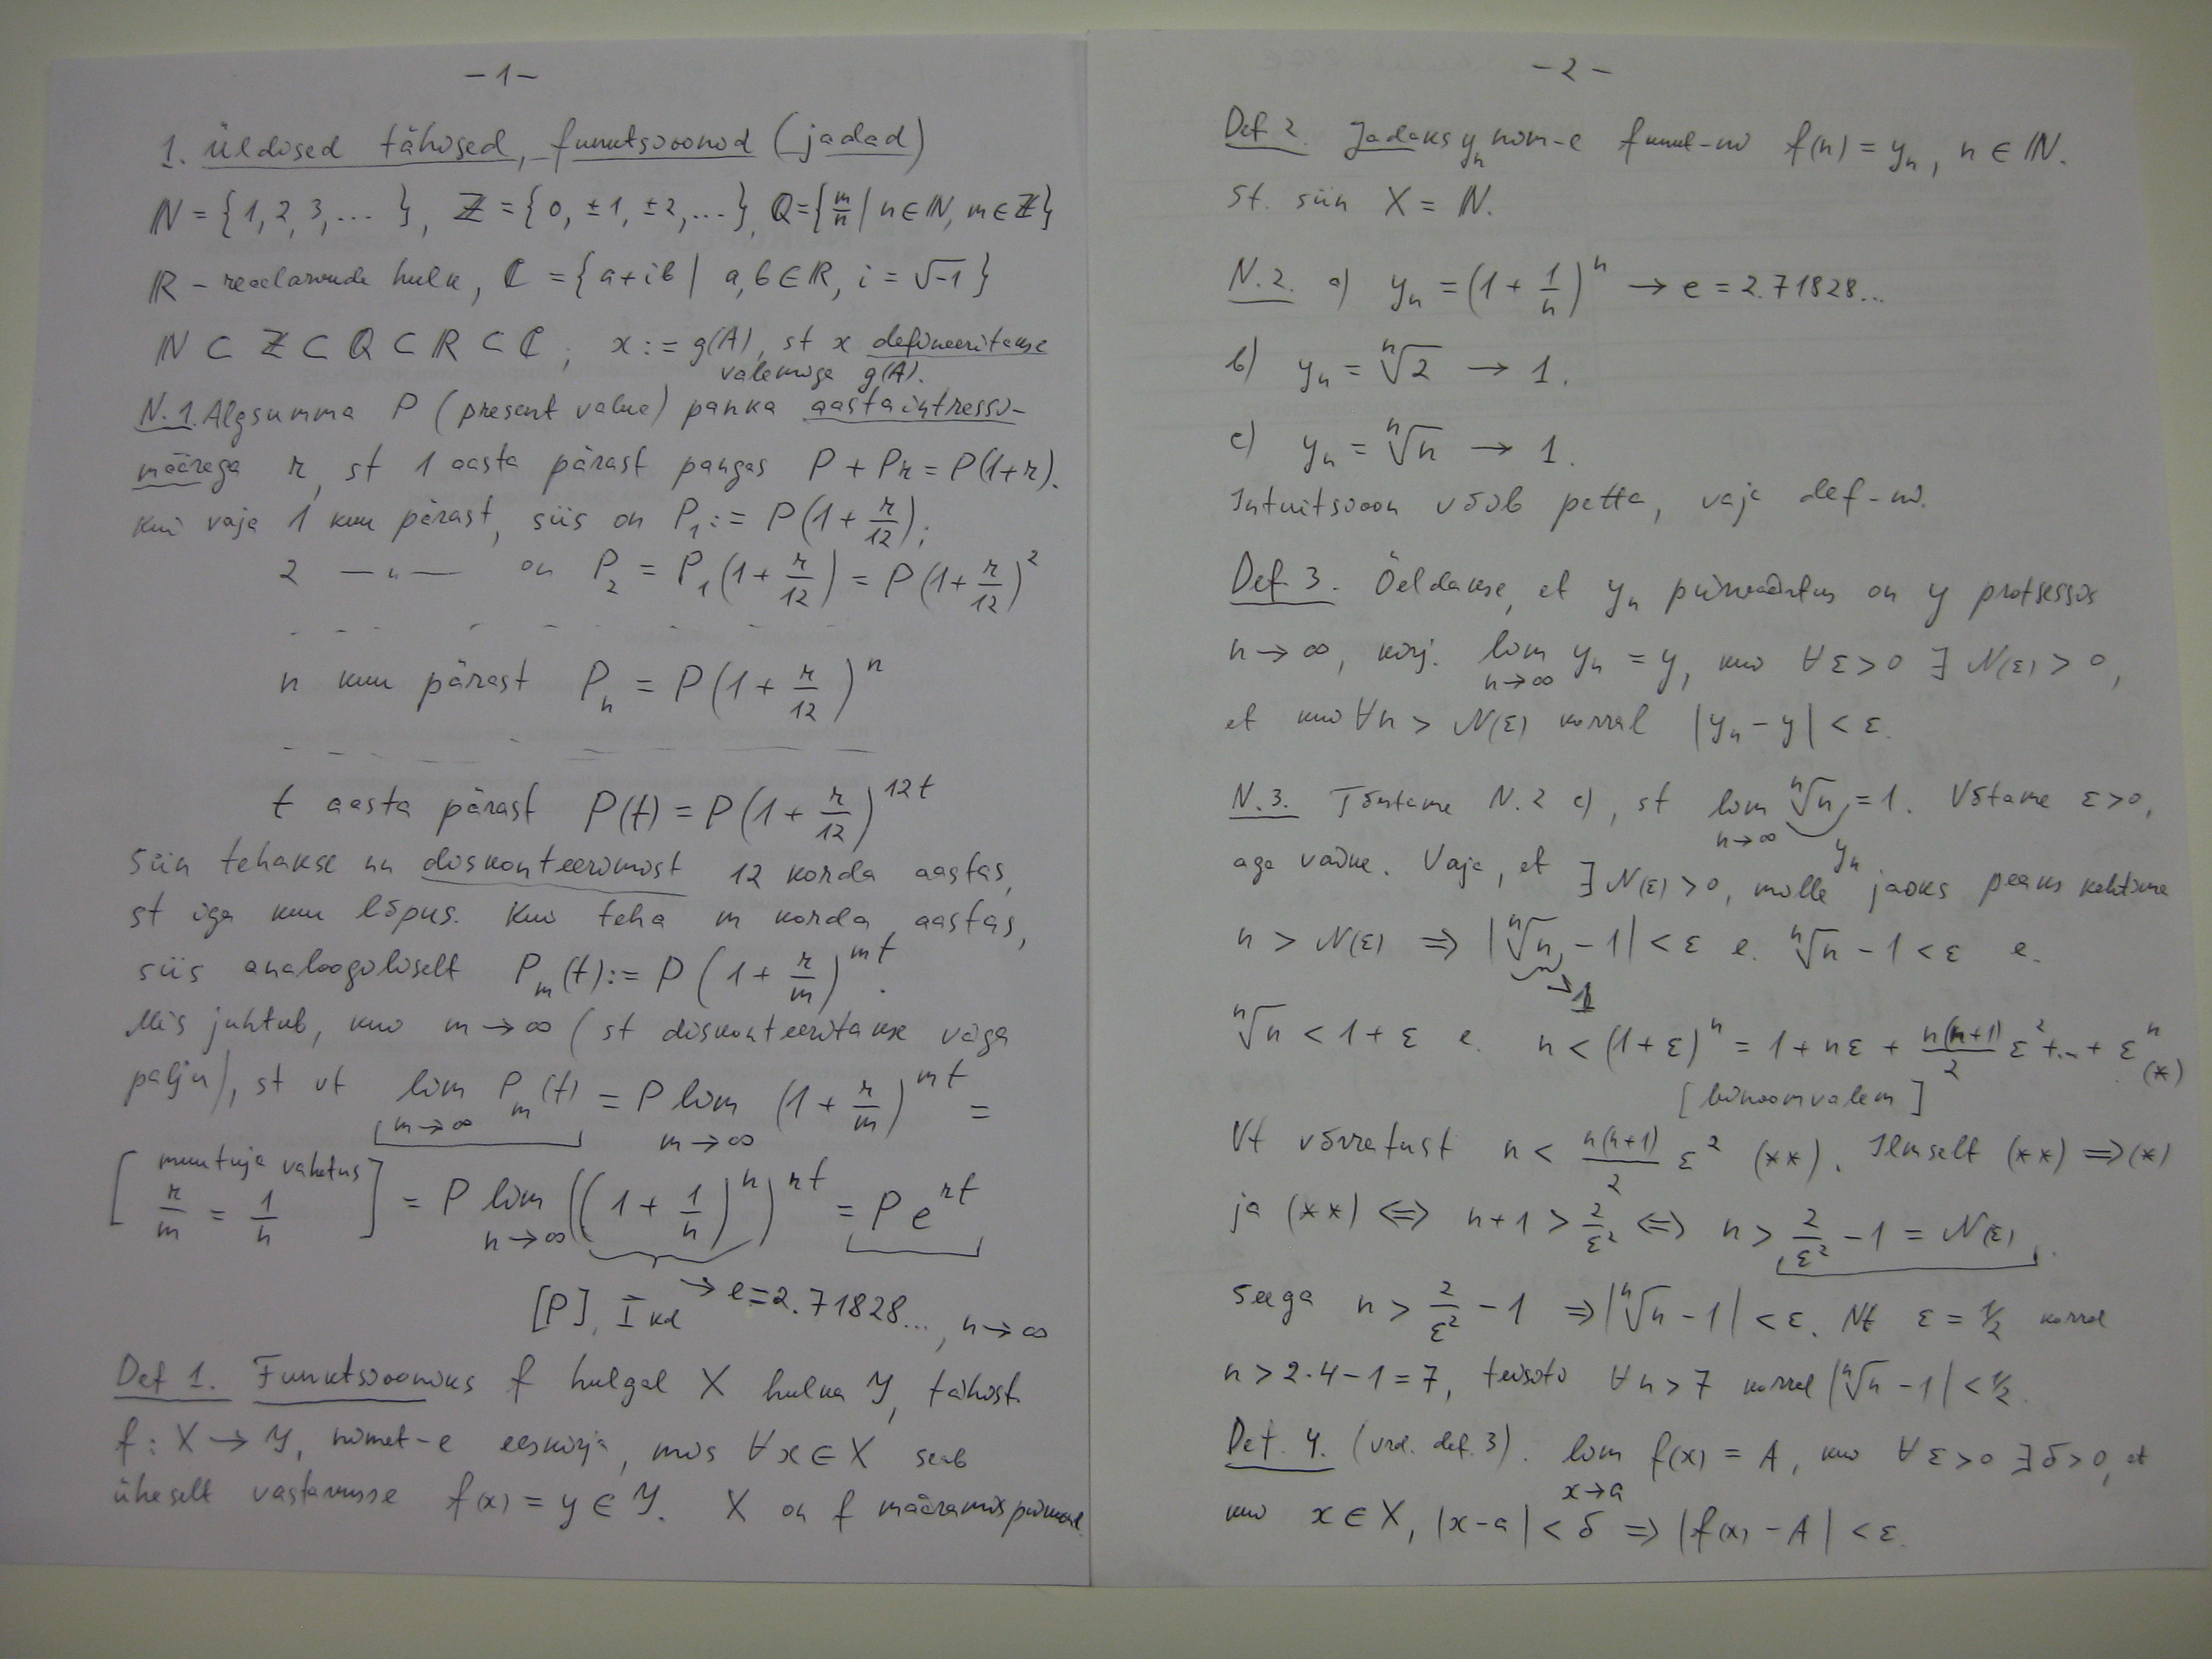 - 1 -
1. Üldised tähised, funktsioonid (jadad)
ℕ = {1, 2, 3, ... }, ℤ = {0, ±1, ±2, ...}, ℚ = {m/n | n ∈ ℕ, m ∈ ℤ}
ℝ – reaalarvude hulk, ℂ = {a + ib | a, b ∈ ℝ, i = √-1}
ℕ ⊂ ℤ ⊂ ℚ ⊂ ℝ ⊂ ℂ; x := g(A), st x defineeritakse
valemiga g(A).
N.1. Algsumma P (present value) panka aastaintressi-
määrega r, st 1 aasta pärast pangas P + Pr = P(1+r).
Kui vaja 1 kuu pärast, siis on P₁ := P(1 + r/12);
2 —"— on P₂ = P₁(1 + r/12) = P(1 + r/12)²
- - - - - - - -
n kuu pärast Pₙ = P(1 + r/12)ⁿ
- - - - - - - -
t aasta pärast P(t) = P(1 + r/12)^{12t}
Siin tehakse nn diskonteerimist 12 korda aastas,
st iga kuu lõpus. Kui teha m korda aastas,
siis analoogiliselt P_m(t) := P(1 + r/m)^{mt}.
Mis juhtub, kui m → ∞ (st diskonteeritakse väga
palju), st vt lim_{m→∞} P_m(t) = P lim_{m→∞} (1 + r/m)^{mt} =
[muutuja vahetus r/m = 1/n] = P lim_{n→∞} ((1 + 1/n)ⁿ)^{rt} = P e^{rt}
[P], I kd → e = 2.71828..., n → ∞
Def 1. Funktsiooniks f hulgal X hulka Y, tähist.
f : X → Y, nimet-e eeskirja, mis ∀x ∈ X seab
üheselt vastavusse f(x) = y ∈ Y. X on f määramispiirkond
- 2 -
Def 2. Jadaks yₙ nim-e funk-ni f(n) = yₙ, n ∈ ℕ.
st. siin X = ℕ.
N.2. a) yₙ = (1 + 1/n)ⁿ → e = 2.71828...
b) yₙ = ⁿ√2 → 1.
c) yₙ = ⁿ√n → 1.
Intuitsioon võib petta, vaja def-ni.
Def 3. Öeldakse, et yₙ piirväärtus on y protsessis
n → ∞, kirj. lim_{n→∞} yₙ = y, kui ∀ε > 0 ∃ N(ε) > 0,
et kui ∀n > N(ε) korral |yₙ - y| < ε.
N.3. Tõestame N.2 c), st lim_{n→∞} ⁿ√n = 1. Võtame ε > 0,
yₙ
aga väike. Vaja, et ∃ N(ε) > 0, mille jaoks peaks kehtima
n > N(ε) ⇒ |ⁿ√n - 1| < ε e. ⁿ√n - 1 < ε e.
→ 1
ⁿ√n < 1 + ε e. n < (1 + ε)ⁿ = 1 + nε + n(n+1)/2 ε² + ... + εⁿ (*)
[binoomvalem]
Vt võrratust n < n(n+1)/2 ε² (**). Ilmselt (**) ⇒ (*)
ja (**) ⇔ n+1 > 2/ε² ⇔ n > 2/ε² - 1 = N(ε).
Seega n > 2/ε² - 1 ⇒ |ⁿ√n - 1| < ε. Nt ε = 1/2 korral
n > 2·4 - 1 = 7, teisiti ∀n > 7 korral |ⁿ√n - 1| < 1/2.
Def. 4. (vrd. def. 3). lim_{x→a} f(x) = A, kui ∀ε > 0 ∃δ > 0, et
kui x ∈ X, |x - a| < δ ⇒ |f(x) - A| < ε.